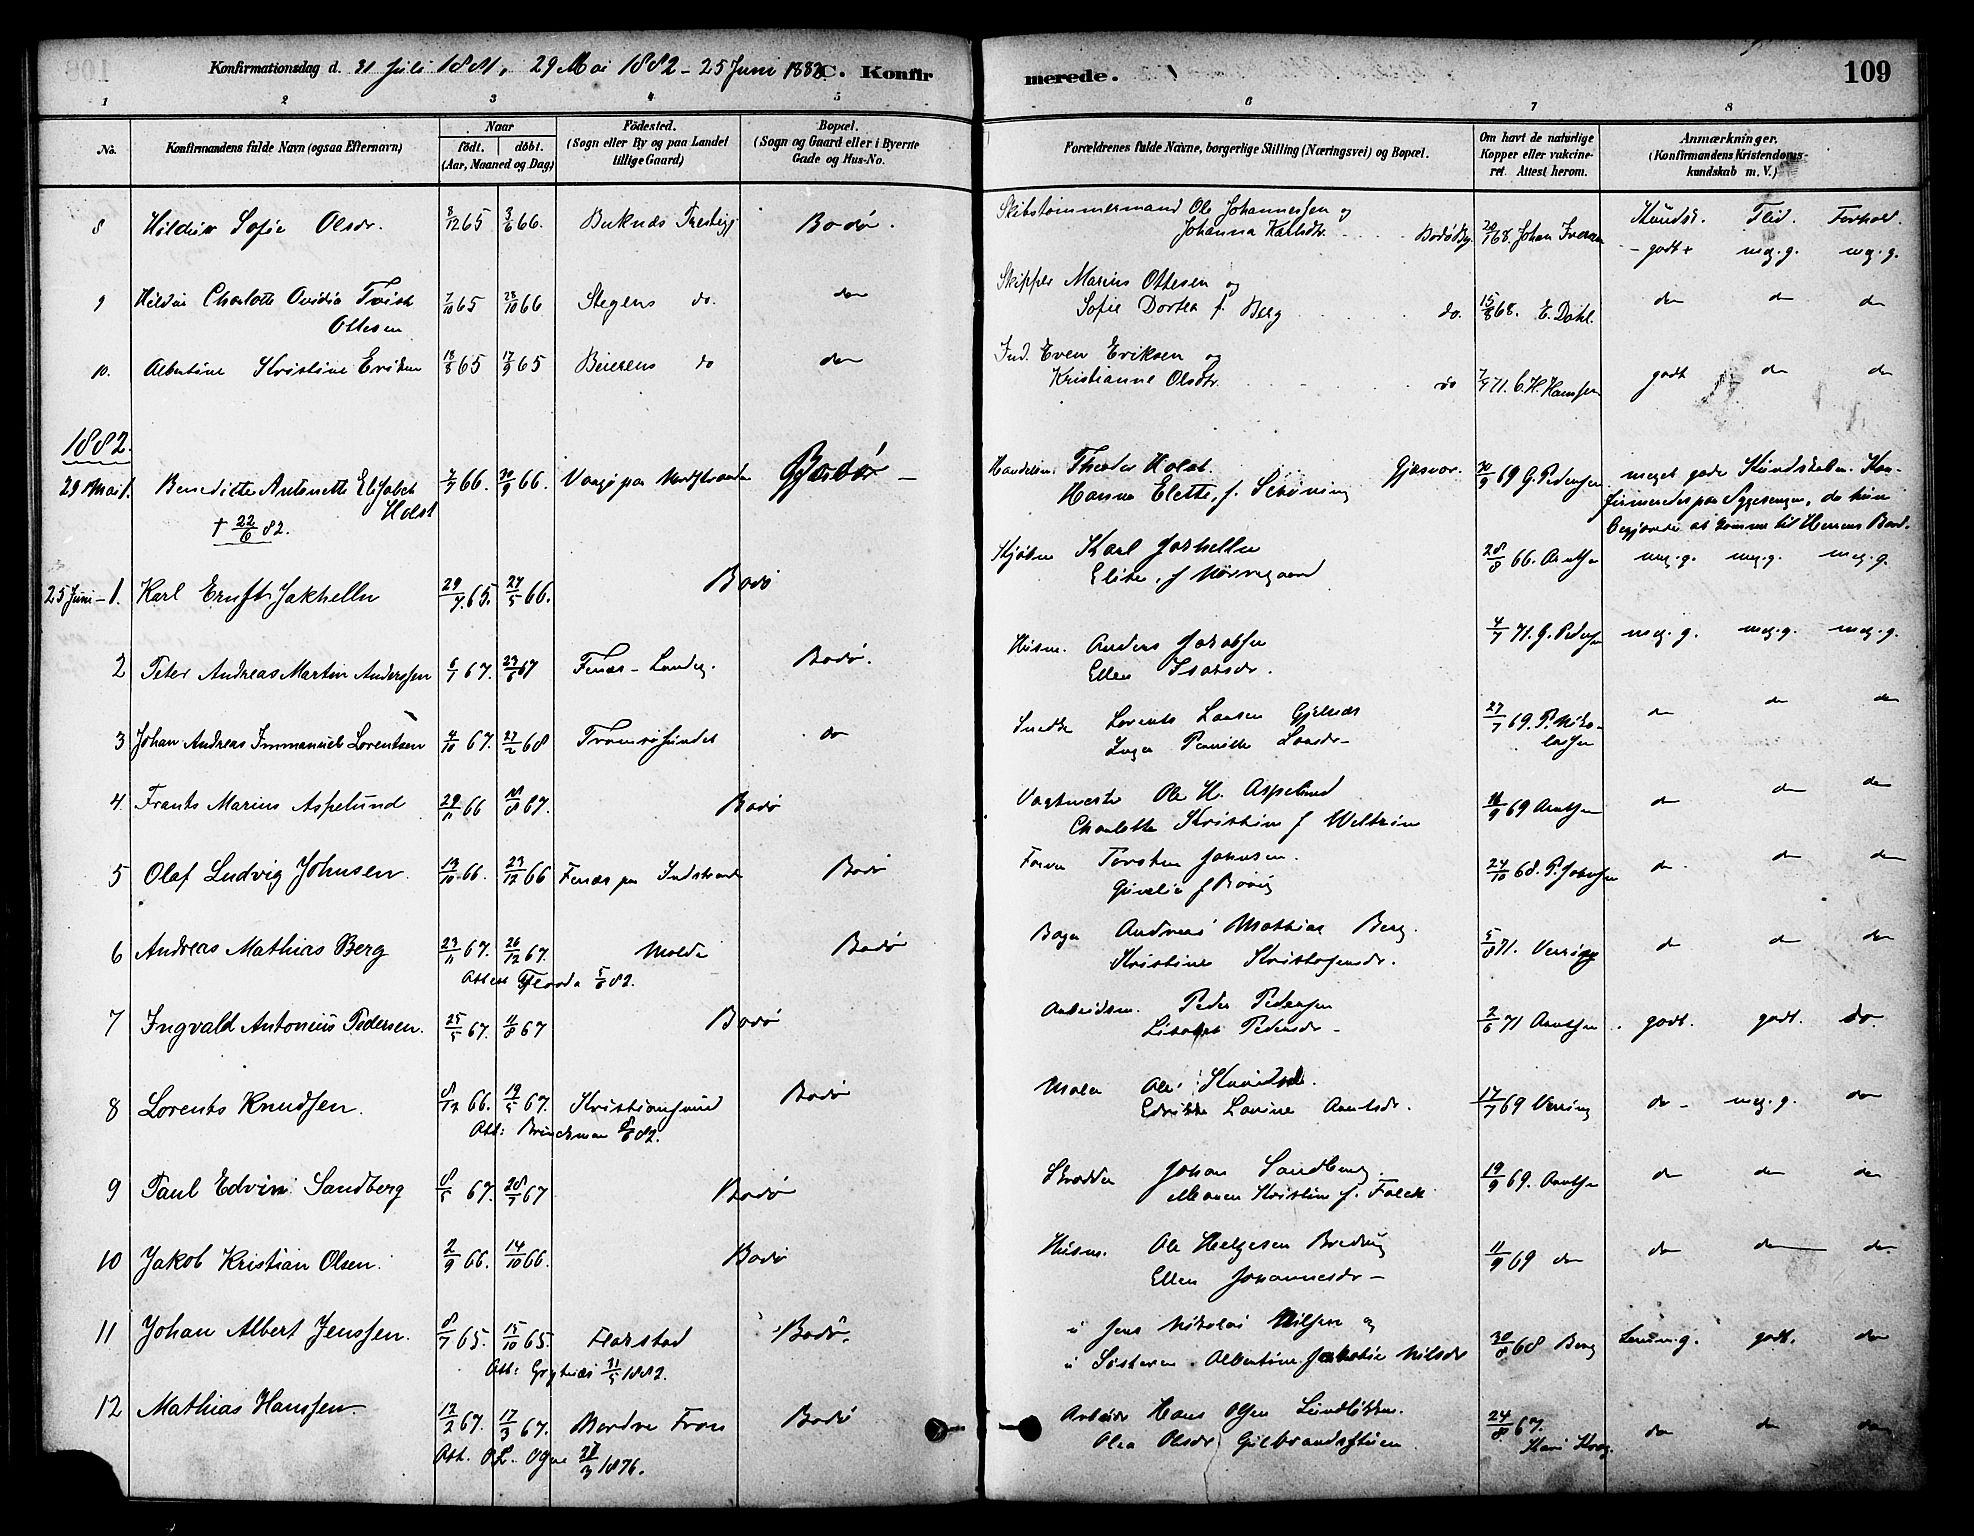 Konfirmationsdag d. 31 Juli 1881, 29 Mai 1882 - 25 Juni 1882 C. Konfirmerede. 109
1 2 3 4 5 6 7 8
No. Konfirmandens fulde Navn (ogsaa Efternavn) Naar födt. döbt. (Aar, Maaned og Dag) Födested. (Sogn eller By og paa Landet tillige Gaard) Bopæl. (Sogn og Gaard eller i Byerne Gade og Hus-No. Forældrenes fulde Navne, borgerlige Stilling (Næringsvei) og Bopæl. Om havt de naturlige Kopper eller vakcineret. Attest herom. Anmærkninger. (Konfirmandens Kristendomskundskab m. V.)
8 Sofie Olsdr. 8/12 65 3/6 66. Buknæs Bodø. Skibstømmermand Ole Johannessen og
Johanna Karlsdr. Bodø By. 20/7 68. Johan Iversen Kundsk. Flid. Forhold.
- godt + meg. g. meg. g.
9 Charlotte Ovidia Ottesen 7/10 65 28/10 66 Stegens do. do Skipper Marius Ottesen og
Sofie Dortea f. Berg do. 15/8 68. E. Dahl. do do do
10. Albertine Kristine Eriksen 18/8 65 17/9 65 Beierens do do Ind. Even Eriksen og
Kristianne Olsdtr. do 7/7 71. C. H. Hanssen godt do do
1882.
29 Mai 1. Benedikte Antonette Elisabet Holst 7/7 66. 30/9 66. Bodø Theodor Holst. Gjæsvær.
Hanna Elette, f. Schøning 30/9 69 G. Pedersen meget gode Kundskaber. Konfirmeredes paa Sygesengen, da hun
begjærede at komme til Herrens Bord.
† 22/6 82.
25 Juni - 1. Karl Ernst Jakhelln 29/7 65. 27/5 66. Bodø Karl Jakhelln
Elise, f 28/8 66. Arntsen meg. g. meg. g. meg. g.
2 Peter Andreas Martin Anderssen 6/7 67. 23/6 67 Bodø. Husm. Anders Jakobsen
Ellen Isaksdr. 4/7 71. G. Pedersen meg. g. meg. g. meg. g.
3 Johan Andreas Immanuel Lorentsen 4/10 67. 27/2 68 Tromsøsundet do Lorents Larsen
Inger Pernille Larsdr 27/7 69. P. Nikolaisen do do do
4. Frants Marius Aspelund 29/11 66 11/8 67. Bodø Vagtmester Ole H. Aspelund
Charlotte Kristine f 16/9 69 Arntsen do do do
5 Olaf Ludvig Johnsen. 13/10 66. 23/12 66 Bodø Torsten Johnsen.
24/10 68. P. Johnsen do. do do
6 Andreas Mathias Berg 23/11 67. 26/12 67. Molde Bodø Bager Andreas Mathias Berg.
Kristine Kristofersdr. 5/8 71. do do do
5/6 82.
7 Ingvald Antonius Pedersen. 25/5 67. 11/8 67 Bodø Arbeidsm. Peder Pedersen
Pedersdr 2/6 71 Arntsen godt. godt. do.
8 Lorents Knudsen. 8/12 66. 19/5 67. Kristianssund Bodø Maler Ole Knudsen.
Lovine Arntsdr. 17/7 69 do meg. g. do
Att: Brinckman 8/6 82.
9 Paul Edvin Sandberg 8/5 67. 28/7 67 Bodø Skrædder Johan Sandberg.
Maren Kristine f. Falck 19/9 69. Arntsen do do do
10 Jakob Kristian Olsen. 2/9 66. 14/10 66. Bodø Husm. Ole Helgesen
Ellen Johannesdr 11/9 69 do do do do
11 Johan Albert Jenssen. 8/7 65. 15/10 65. Bodø. u Jens Nikolai Nilssen og
u Søsteren Albertine Nilsdr 30/8 68 Berg Temm. g. godt. do
Att: 31/5 1882.
12 Mathias Hanssen. 12/2 67. 17/3 67. Bodø Arbeider Hans Olsen
Olea Olsdr 24/8 67. do do do
Att. 28/3 1876.